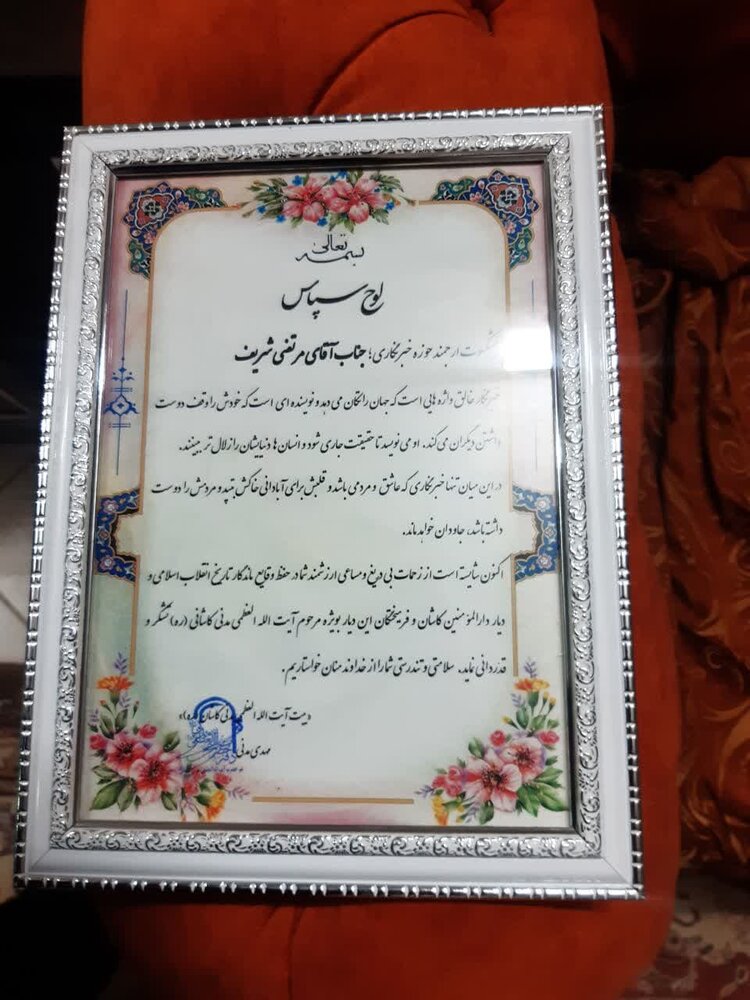 بسمه تعالی
لوح سپاس
پیشکسوت ارجمند حوزه خبرنگاری؛ جناب آقای مرتضی شریف
خبرنگار خالق واژه هایی است که جهان را تکان می دهد و نویسنده ای است که خودش را وقف دوست
داشتن دیگران می کند. او می نویسد تا حقیقت جاری شود و انسان ها دنیایشان را زلال تر ببینند.
در این میان تنها خبرنگاری که عاشق و مردمی باشد و قلبش برای آبادانی خاکش بتپد و مردمش را دوست
داشته باشد، جاودان خواهد ماند.
اکنون شایسته است از زحمات بی دریغ و مساعی ارزشمند شما در حفظ وقایع ماندگار تاریخ انقلاب اسلامی و
دیار دارالمؤمنین کاشان و فرهیختگان این دیار بویژه مرحوم آیت الله العظمی مدنی کاشانی (ره) تشکر و
قدردانی نماید. سلامتی و تندرستی شما را از خداوند منان خواستاریم.
«بیت آیت الله العظمی مدنی کاشانی (ره)»
مهدی مدنی